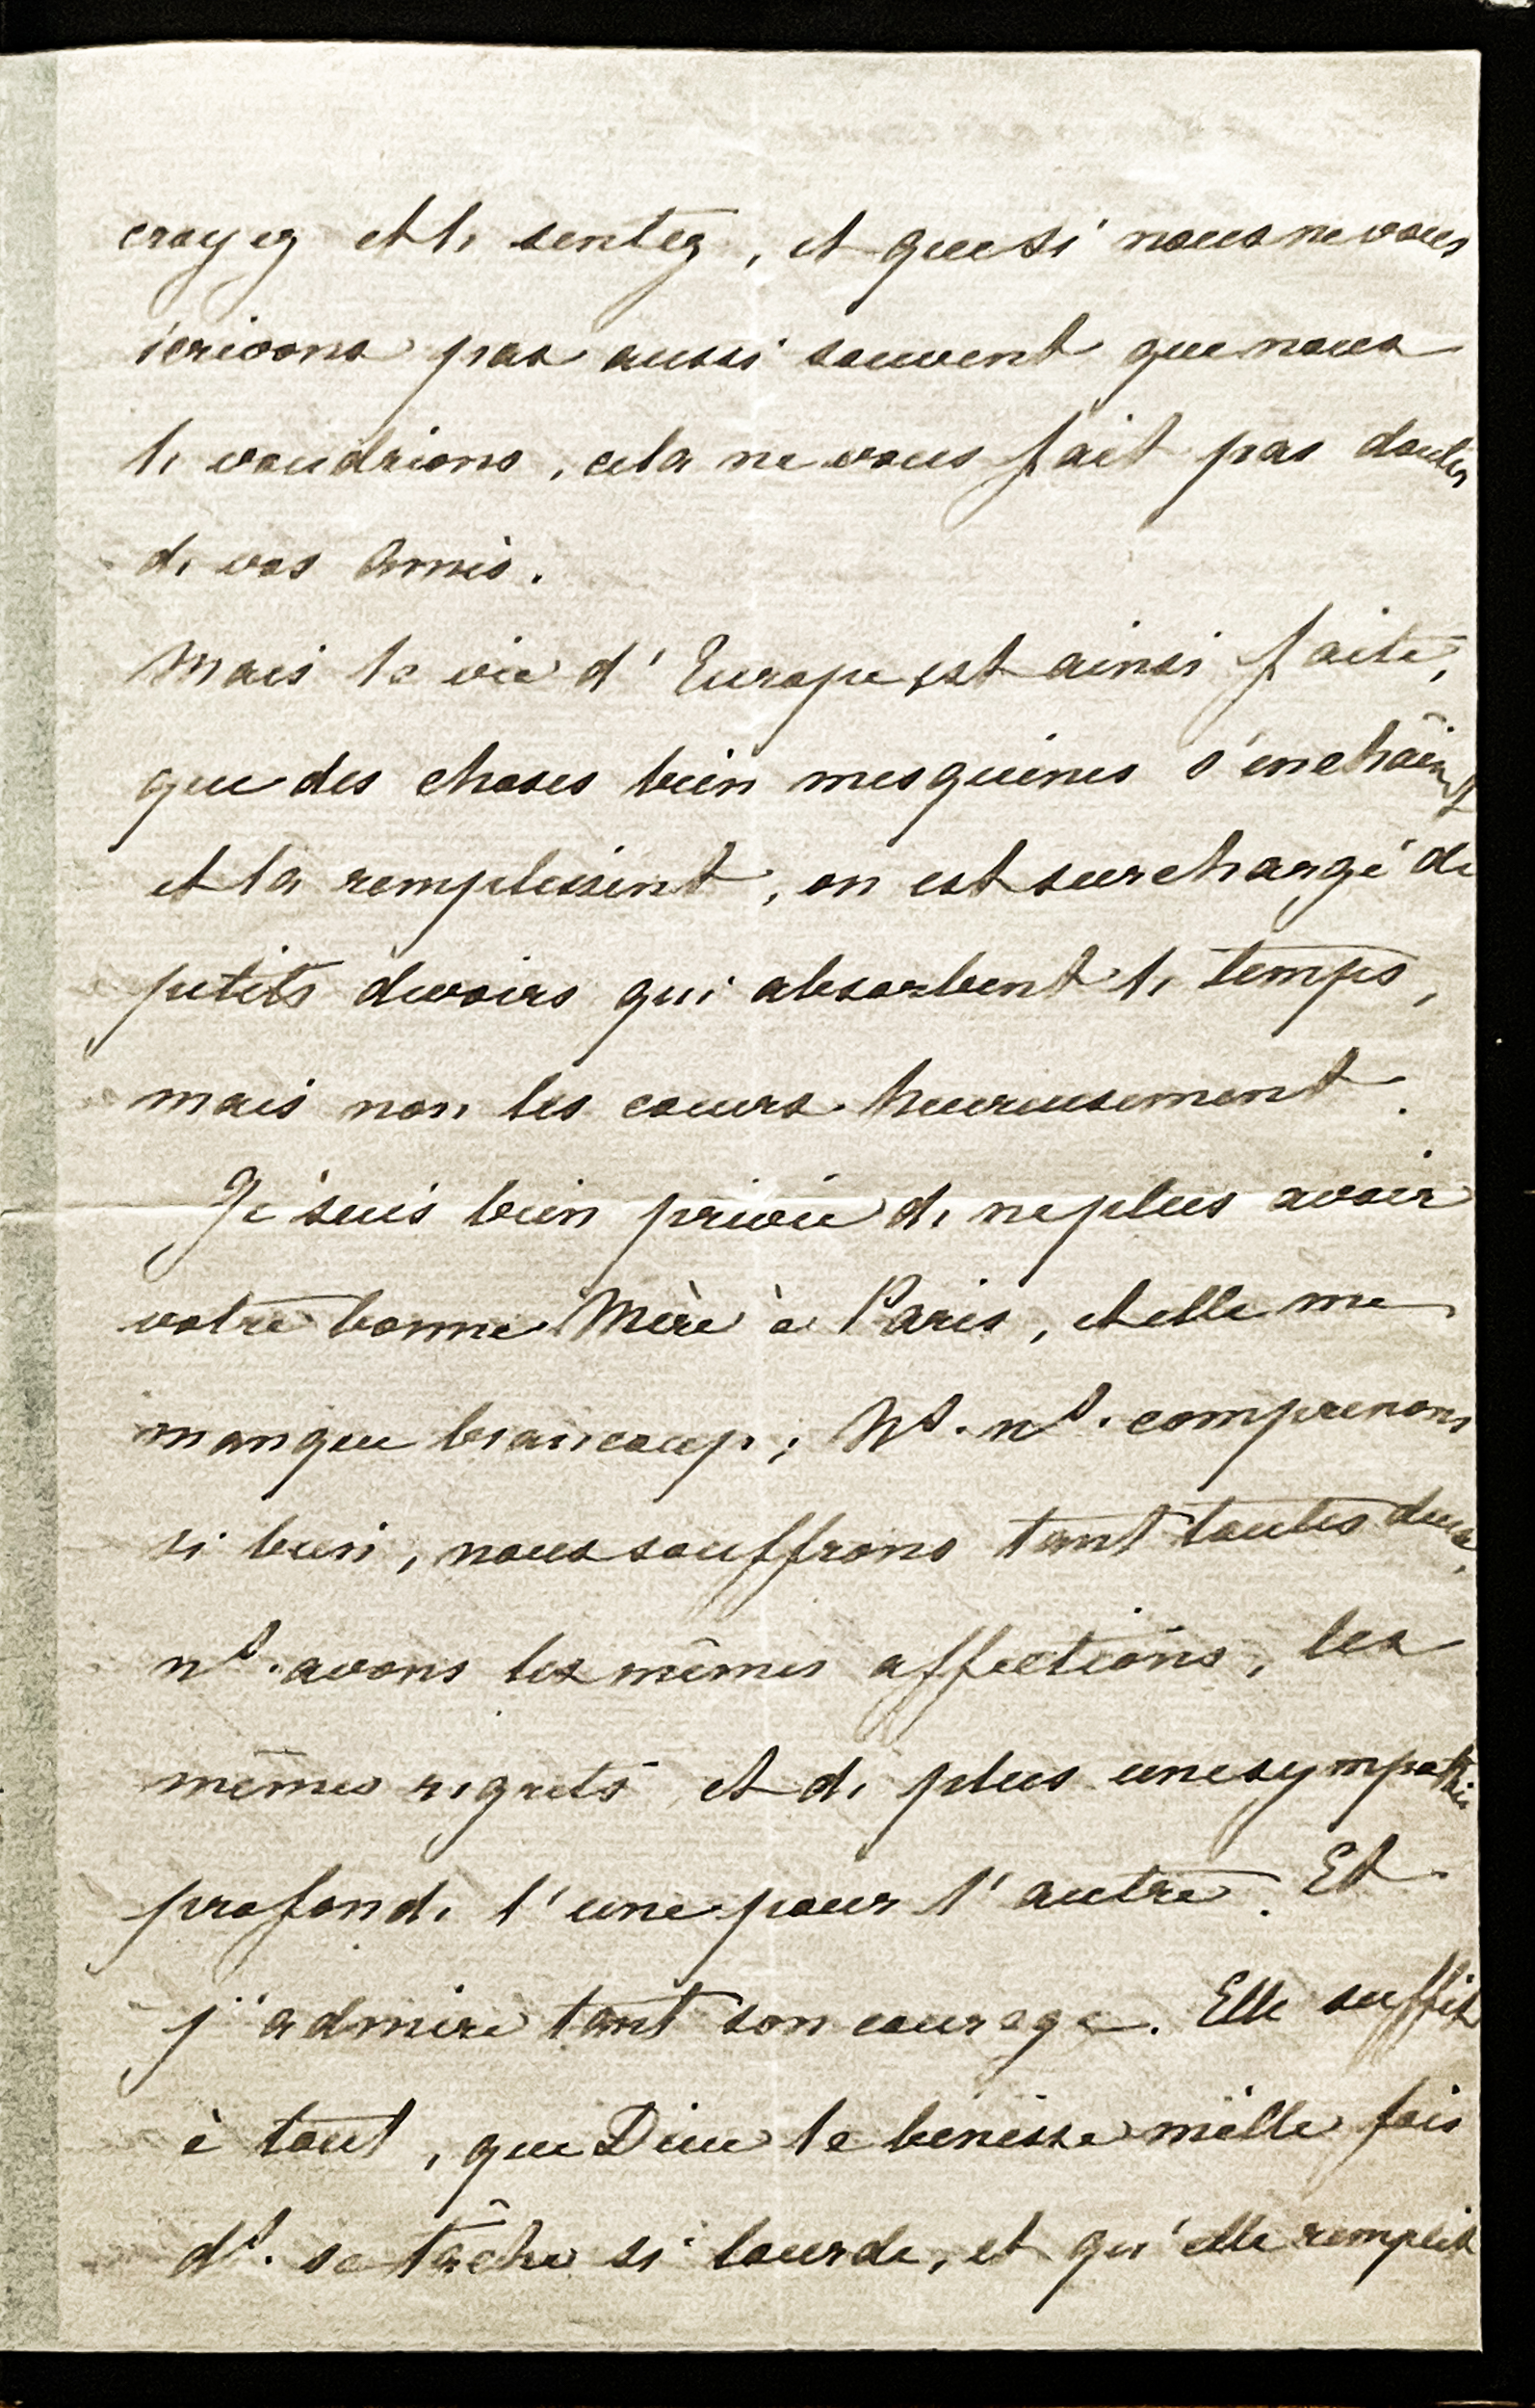 croyez et le sentez, et que si nous ne vous
écrivons pas aussi souvent que nous
le voudrions, cela ne vous fait pas douter
de vos Amis.
Mais la vie d'Europe est ainsi faite,
que des choses bien mesquines s'enchaînent
et la remplissent, on est surchargé de
petits devoirs qui absorbent le temps,
mais non les coeurs heureusement.
Je suis bien privée de ne plus avoir
votre bonne Mère à Paris, et elle me
manque beaucoup; Ns. ns. comprenons
si bien, nous souffrons tant toutes deux,
ns. avons les mêmes affections, les
mêmes regrets et de plus une sympathie
profonde l'une pour l'autre. Et
j'admire tant son courage. Elle suffit
à tout, que Dieu la bénisse mille fois
ds. sa tâche si lourde, et qu'elle remplit